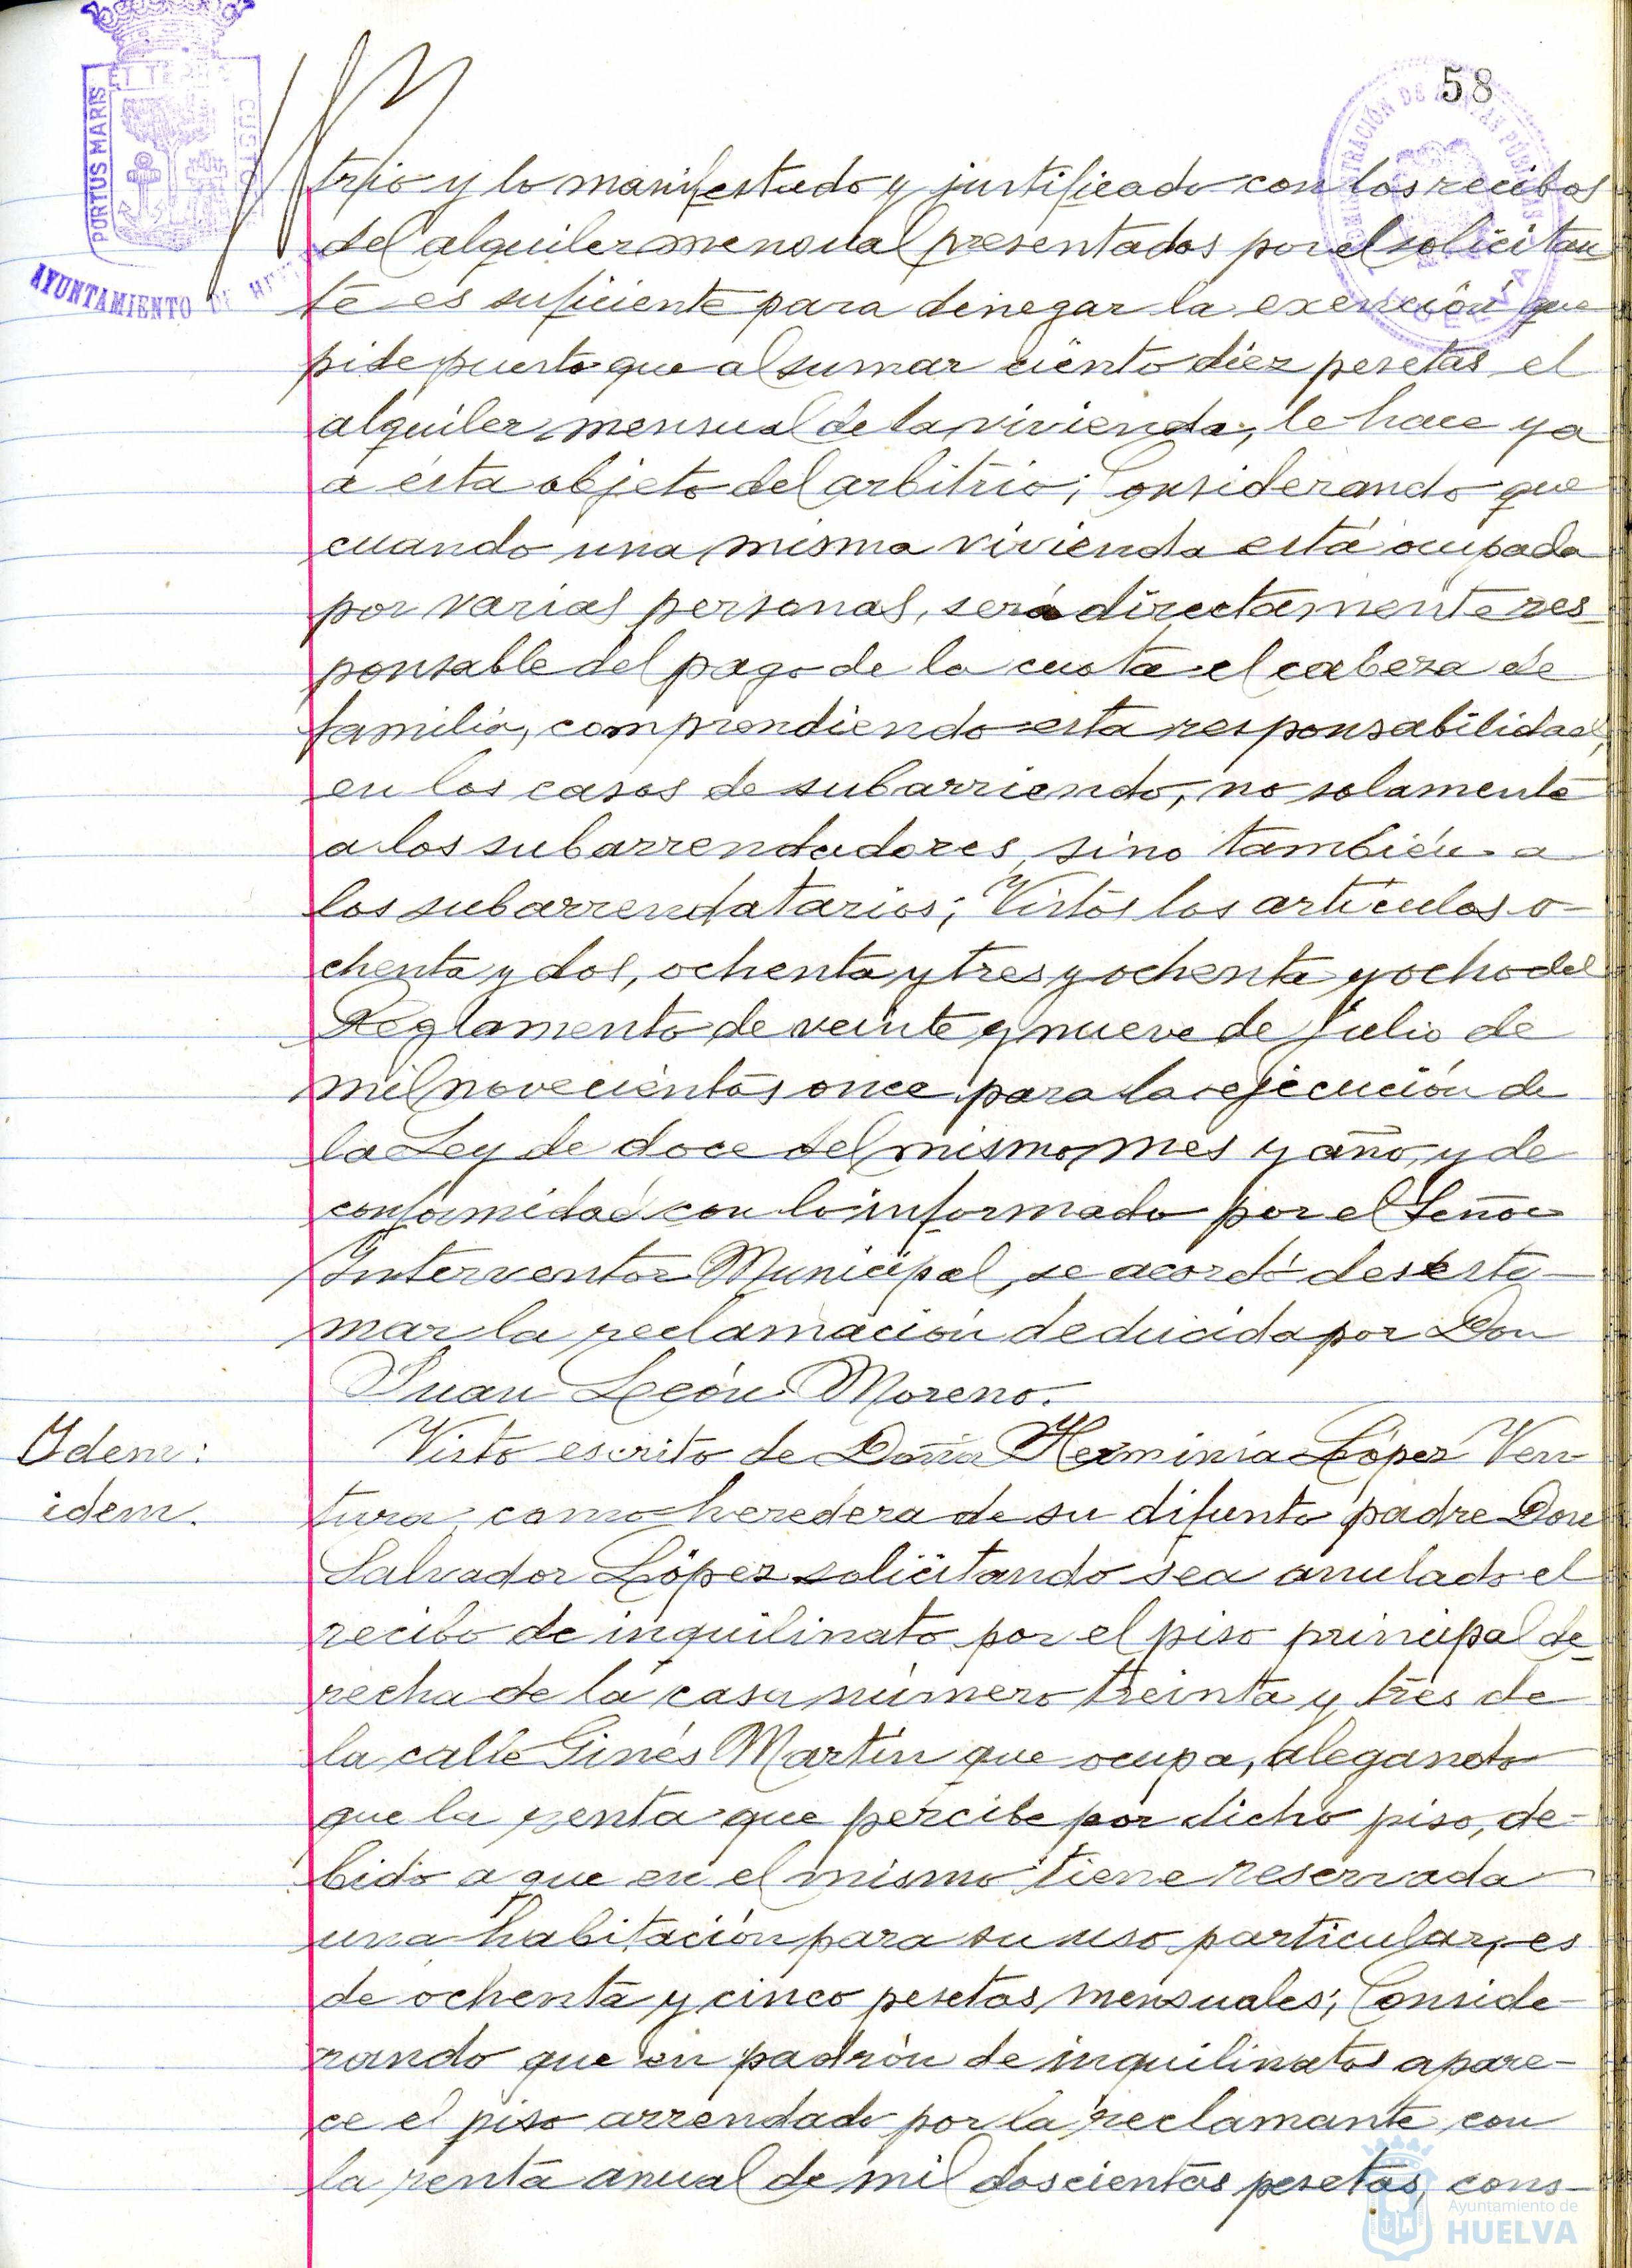 58
PORTUS MARIS
ET TERRE
CUSTO
AYUNTAMIENTO DE
trio y lo manifestado y justificado con los recibos
del alquiler mensual presentados por el solicitan
te es suficiente para denegar la exención que
pide puesto que al sumar ciento diez pesetas el
alquiler mensual de la vivienda, le hace ya
a ésta objeto del arbitrio; Considerando que
cuando una misma vivienda está ocupada
por varias personas, será directamente res_
ponsable del pago de la cuota el cabeza de
familia, comprendiendo esta responsabilidad,
en los casos de subarriendo, no solamente
a los subarrendadores, sino también a
los subarrendatarios; Vistos los artículos o-
chenta y dos, ochenta y tres y ochenta y ocho del
Reglamento de veinte y nueve de julio de
mil novecientos once para la ejecución de
la Ley de doce del mismo mes y año, y de
conformidad con lo informado por el Señor
Interventor Municipal, se acordó desesti-
mar la reclamación deducida por Don
Juan León Moreno.
Idem:
idem.
Visto escrito de Doña Herminia López Ven
tura, como heredera de su difunto padre Don
Salvador López solicitando sea anulado el
recibo de inquilinato por el piso principal de_
recha de la casa número treinta y tres de
la calle Ginés Martín que ocupa, alegando
que la renta que percibe por dicho piso, de-
bido a que en el mismo tiene reservada
una habitación para su uso particular, es
de ochenta y cinco pesetas mensuales; Conside-
rando que en padrón de inquilinatos apare-
ce el piso arrendado por la reclamante con
la renta anual de mil doscientas pesetas, cons-
Ayuntamiento de
HUELVA